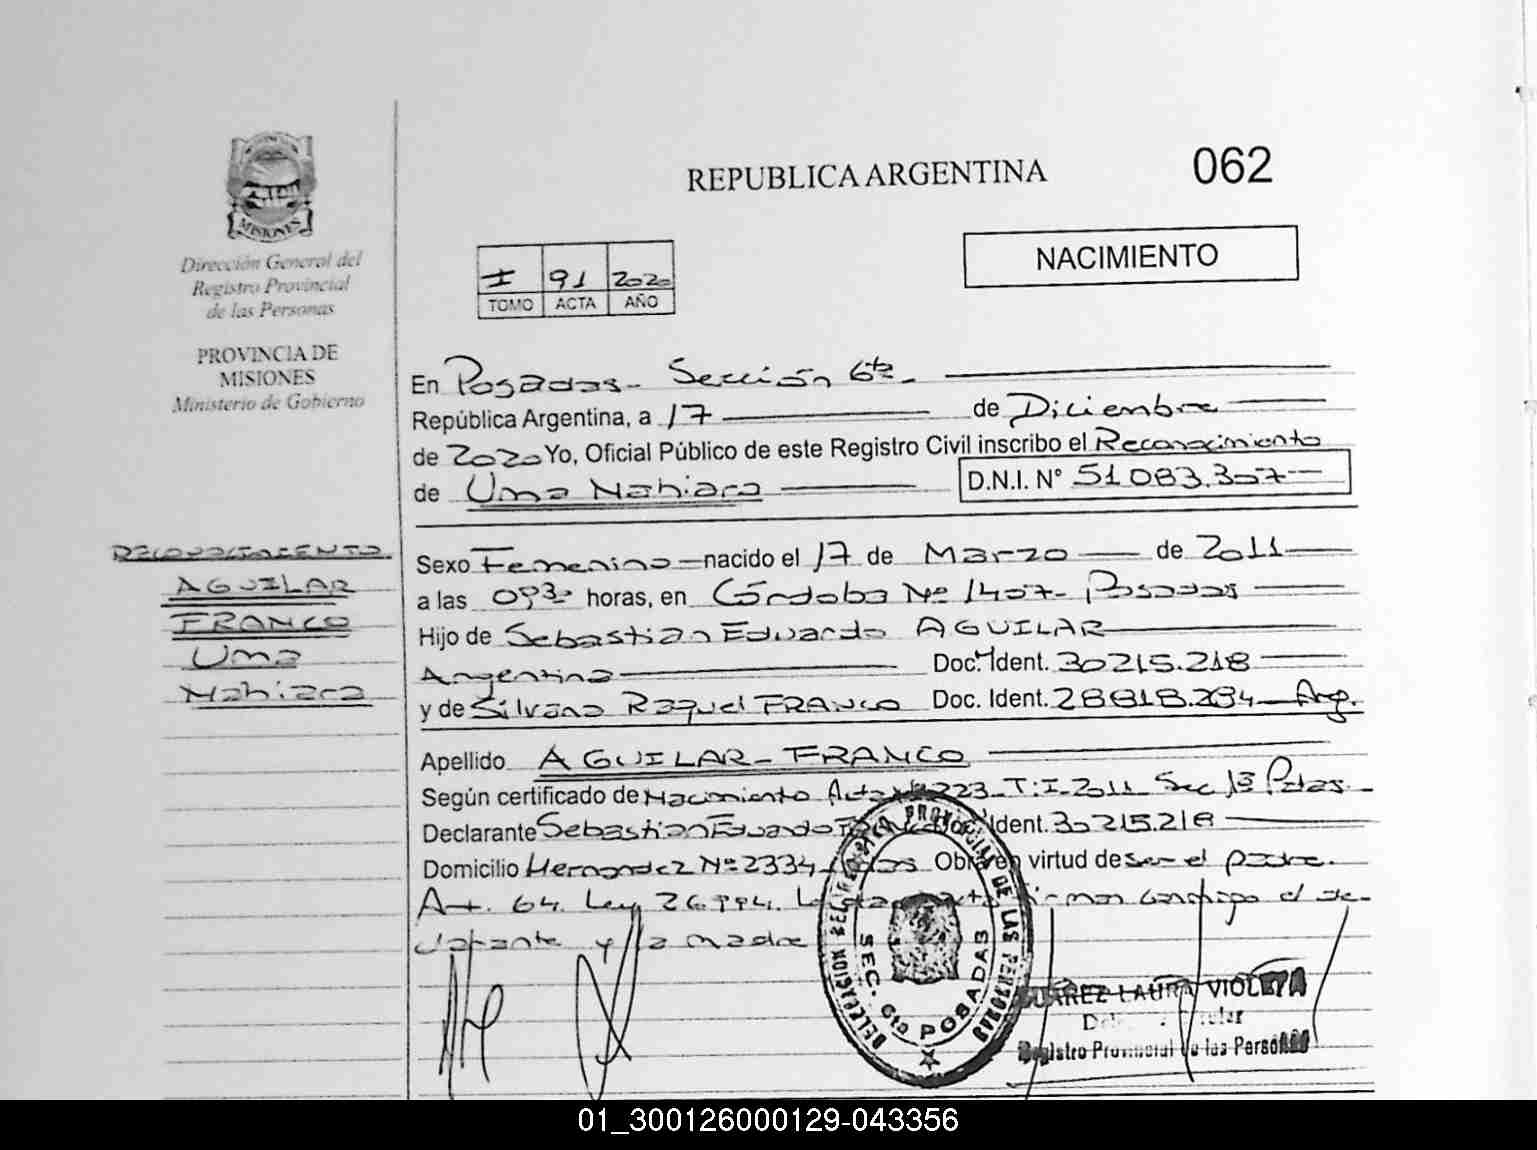 MISIONES
Dirección General del
Registro Provincial
de las Personas
PROVINCIA DE
MISIONES
Ministerio de Gobierno
REPUBLICA ARGENTINA
062
I 91 2020
TOMO ACTA AÑO
NACIMIENTO
En Posadas - Sección 6ta -
República Argentina, a 17 de Diciembre
de 2020 Yo, Oficial Público de este Registro Civil inscribo el Reconocimiento
de Uma Nahiara D.N.I. N° 51.083.307
RECONOCIMIENTO
AGUILAR
FRANCO
Uma
Nahiara
Sexo Femenino nacido el 17 de Marzo de 2011
a las 0930 horas, en Córdoba Nº 1407 - Posadas
Hijo de Sebastian Eduardo AGUILAR
Argentina Doc. Ident. 30215.218
y de Silvana Raquel FRANCO Doc. Ident. 28818.284 Arg.
Apellido AGUILAR - FRANCO
Según certificado de Nacimiento Acta 223 - T: I - 2011 Sec 1ª Pdas -
Declarante Sebastian Eduardo Ident. 30215.218
Domicilio Hernandez Nº 2334 Obra en virtud de ser el padre.
Art. 64. Ley 26994. firman conmigo el de-
clarante y la madre
DELEGACION REGISTRO PROVINCIAL DE LAS PERSONAS
SEC. 6ta POSADAS
SUAREZ LAURA VIOLETA
Registro Provincial de las Personas
01_300126000129-043356